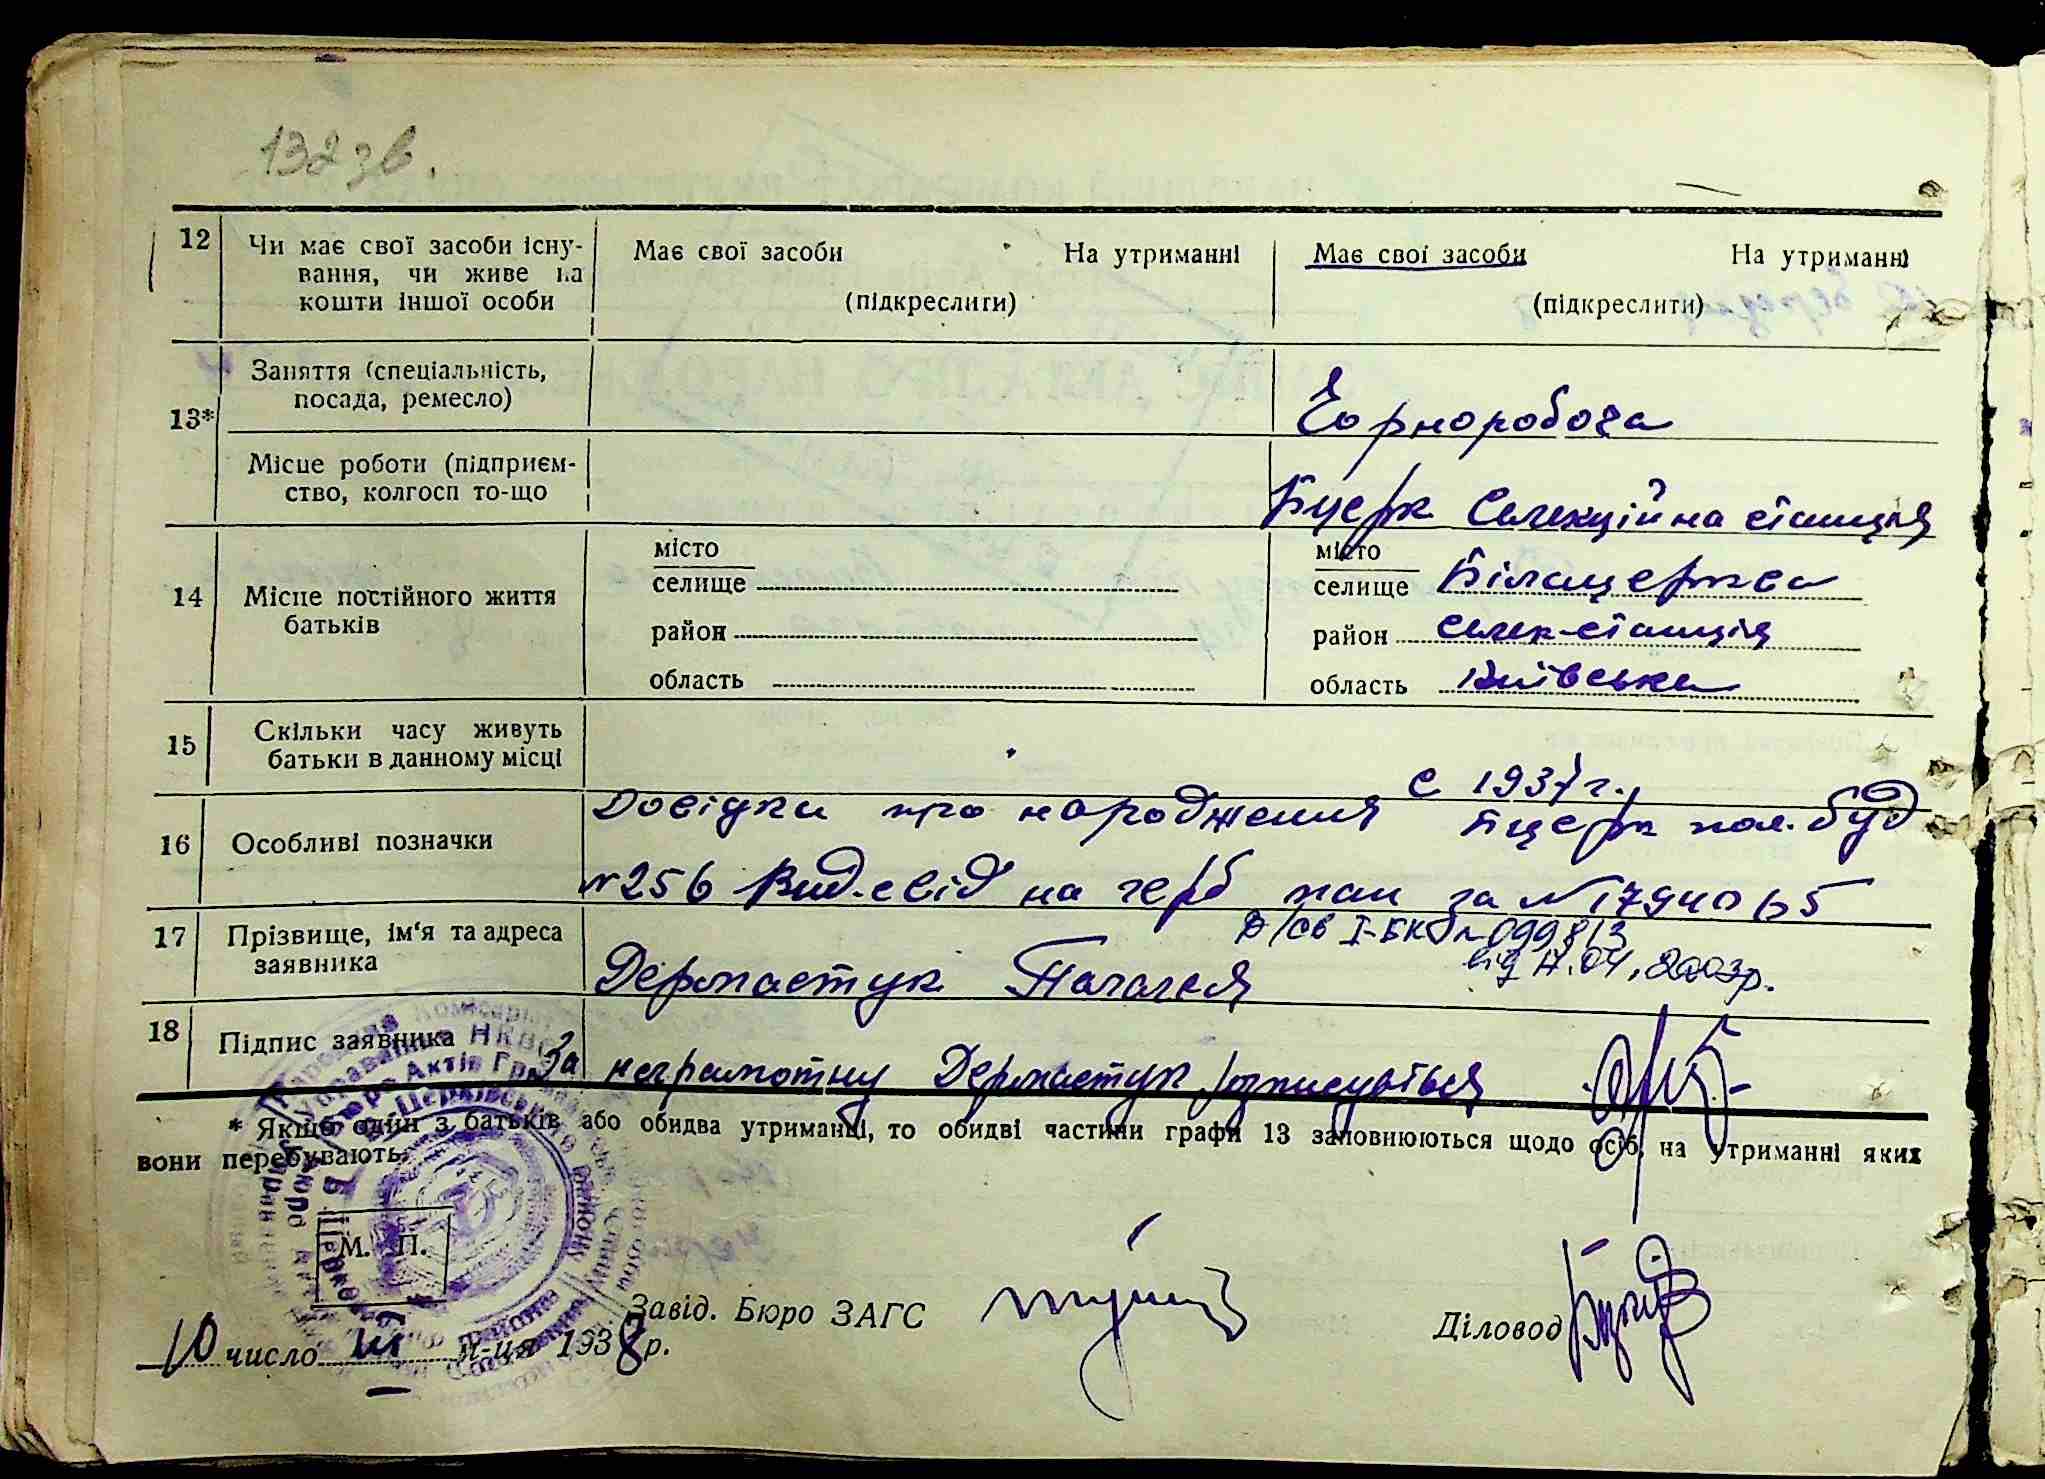 132 зв.
12 Чи має свої засоби існу-
вання, чи живе на
кошти іншої особи
Має свої засоби На утриманні
(підкреслити)
Має свої засоби На утриманні
(підкреслити)
13*
Заняття (спеціальність,
посада, ремесло)
Чорноробоча
Місце роботи (підприєм-
ство, колгосп то-що
Бцерк Селекційна станція
14 Місце постійного життя
батьків
місто
селище
район
область
місто
селище Білацерква
район селек-станція
область Київська
15 Скільки часу живуть
батьки в данному місці
с 1937 г.
16 Особливі позначки
Довідка про народження Бцерк пол. буд
№256 Вид. свід на герб пап за №1794065
17 Прізвище, ім'я та адреса
заявника
Д/св І-БК № 099813
від 17.04.2003р.
Дермастук Палагея
18 Підпис заявника
За неграмотну Дермастук розписується
* Якщо один з батьків або обидва утриманці, то обидві частини графи 13 заповнюються щодо осіб, на утриманні яких
вони перебувають.
М. П.
Завід. Бюро ЗАГС
Діловод
10 число ІІІ м-ця 1938 р.